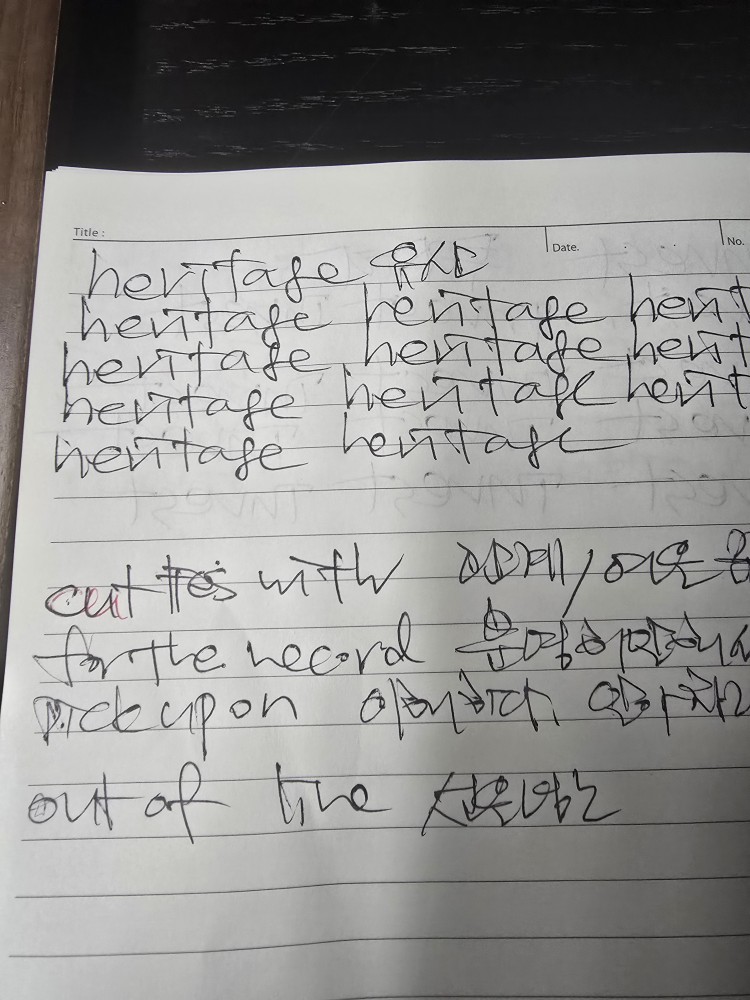 Title :
Date. : . No.
heritage 유산
heritage heritage herit
heritage heritage herit
heritage heritage herit
heritage heritage
cut ties with 관계/
for the record 분명히
pick up on 이해하다, 알아차
out of line